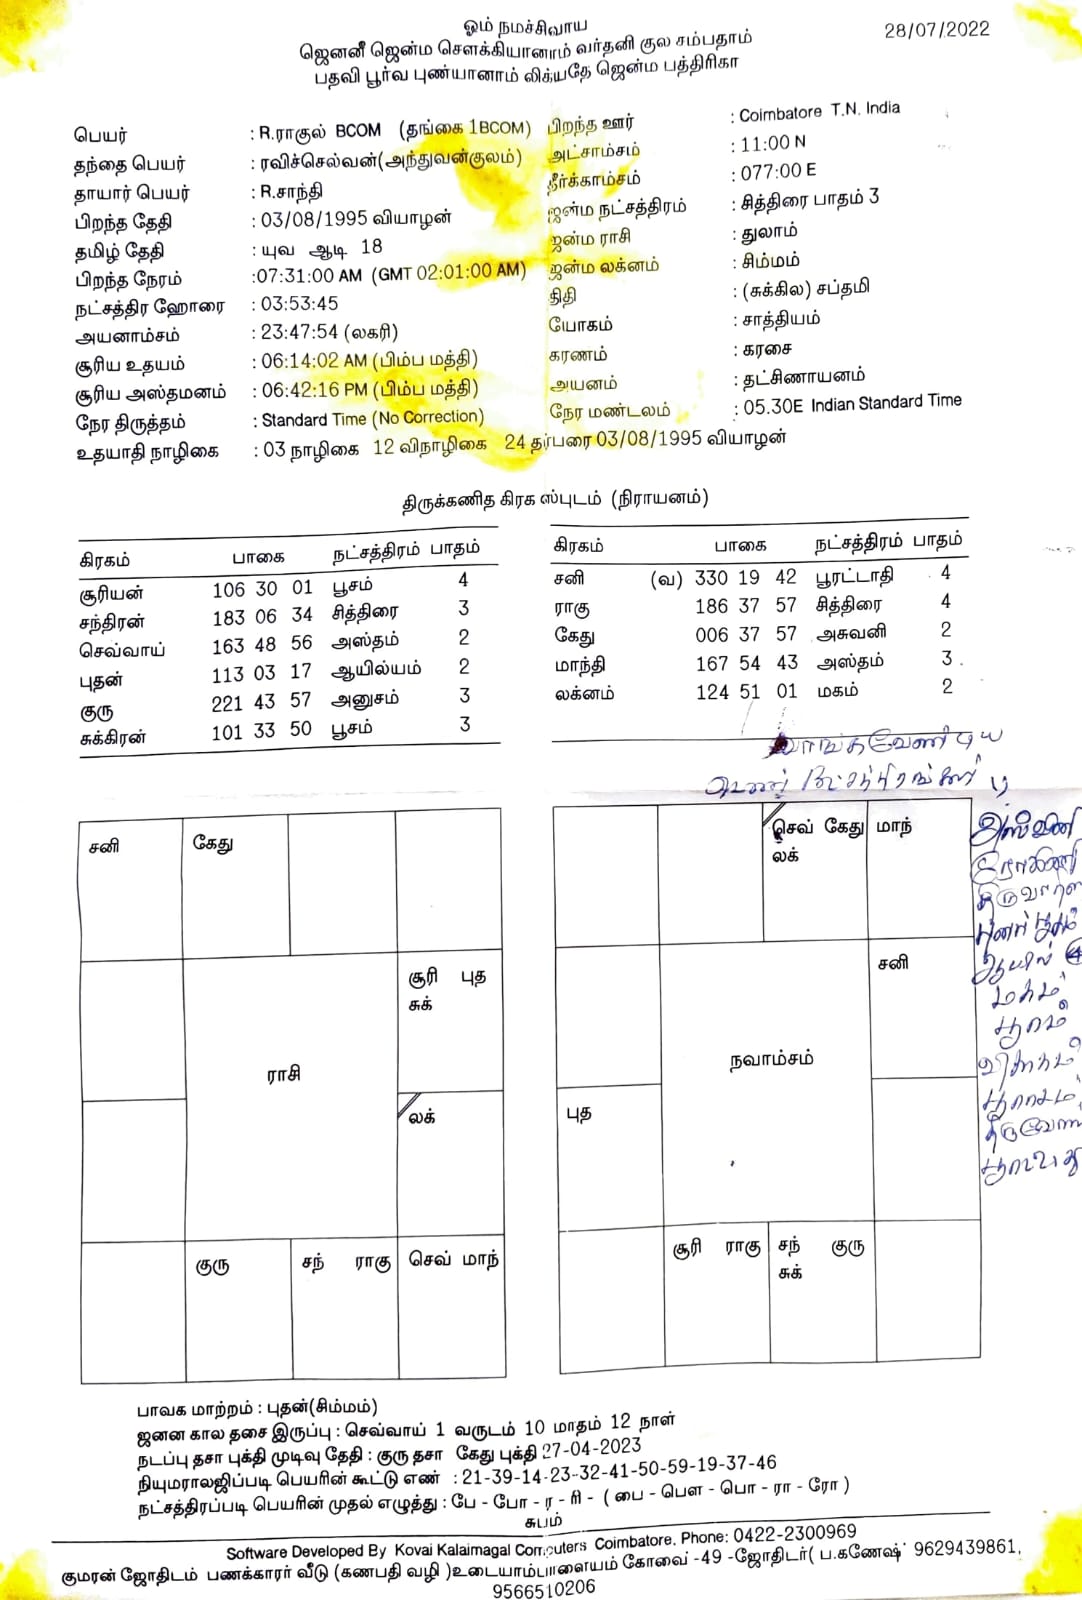 ஓம் நமச்சிவாய
28/07/2022
ஜெனனீ ஜென்ம சௌக்கியானாம் வர்தனி குல சம்பதாம்
பதவி பூர்வ புண்யானாம் லிக்யதே ஜென்ம பத்திரிகா
பெயர் : R.ராகுல் BCOM (தங்கை 1BCOM) பிறந்த ஊர் : Coimbatore T.N. India
தந்தை பெயர் : ரவிச்செல்வன்(அந்துவன்குலம்) அட்சாம்சம் : 11:00 N
தாயார் பெயர் : R.சாந்தி தீர்க்காம்சம் : 077:00 E
பிறந்த தேதி : 03/08/1995 வியாழன் ஜன்ம நட்சத்திரம் : சித்திரை பாதம் 3
தமிழ் தேதி : யுவ ஆடி 18 ஜன்ம ராசி : துலாம்
பிறந்த நேரம் :07:31:00 AM (GMT 02:01:00 AM) ஜன்ம லக்னம் : சிம்மம்
நட்சத்திர ஹோரை : 03:53:45 திதி : (சுக்கில) சப்தமி
அயனாம்சம் : 23:47:54 (லகரி) யோகம் : சாத்தியம்
சூரிய உதயம் : 06:14:02 AM (பிம்ப மத்தி) கரணம் : கரசை
சூரிய அஸ்தமனம் : 06:42:16 PM (பிம்ப மத்தி) அயனம் : தட்சிணாயனம்
நேர திருத்தம் : Standard Time (No Correction) நேர மண்டலம் : 05.30E Indian Standard Time
உதயாதி நாழிகை : 03 நாழிகை 12 விநாழிகை 24 தர்பரை 03/08/1995 வியாழன்
திருக்கணித கிரக ஸ்புடம் (நிராயனம்)
கிரகம் பாகை நட்சத்திரம் பாதம் கிரகம் பாகை நட்சத்திரம் பாதம்
சூரியன் 106 30 01 பூசம் 4 சனி (வ) 330 19 42 பூரட்டாதி 4
சந்திரன் 183 06 34 சித்திரை 3 ராகு 186 37 57 சித்திரை 4
செவ்வாய் 163 48 56 அஸ்தம் 2 கேது 006 37 57 அசுவனி 2
புதன் 113 03 17 ஆயில்யம் 2 மாந்தி 167 54 43 அஸ்தம் 3
குரு 221 43 57 அனுசம் 3 லக்னம் 124 51 01 மகம் 2
சுக்கிரன் 101 33 50 பூசம் 3
வாங்கவேண்டிய
சனி கேது
செவ் கேது மாந்
லக்
அஸ்வினி
ரோகிணி
மகம்
பூரம்
விசாகம்
பூராடம்
சூரி புத
சுக்
சனி
ராசி
நவாம்சம்
லக்
புத
குரு சந் ராகு செவ் மாந்
சூரி ராகு சந் குரு
சுக்
பாவக மாற்றம் : புதன்(சிம்மம்)
ஜனன கால தசை இருப்பு : செவ்வாய் 1 வருடம் 10 மாதம் 12 நாள்
நடப்பு தசா புக்தி முடிவு தேதி : குரு தசா கேது புக்தி 27-04-2023
நியுமராலஜிப்படி பெயரின் கூட்டு எண் : 21-39-14-23-32-41-50-59-19-37-46
நட்சத்திரப்படி பெயரின் முதல் எழுத்து : பே - போ - ர - ரி - ( பை - பௌ - பொ - ரா - ரோ )
சுபம்
Software Developed By Kovai Kalaimagal Computers Coimbatore. Phone: 0422-2300969
குமரன் ஜோதிடம் பணக்காரர் வீடு (கணபதி வழி )உடையாம்பாளையம் கோவை -49 -ஜோதிடர்( ப.கணேஷ் 9629439861,
9566510206